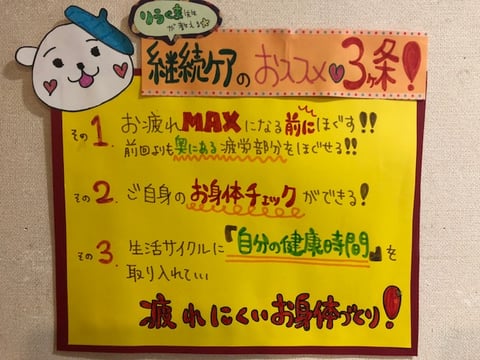 りらく屋先生
が教える☆
継続ケアのおススメ♥3ヶ条!
その1. お疲れMAXになる前にほぐす!!
前回よりも奥にある疲労部分をほぐせる!!
その2. ご自身のお身体チェックができる!
その3. 生活サイクルに『自分の健康時間』を
取り入れてい、、
疲れにくいお身体づくり!